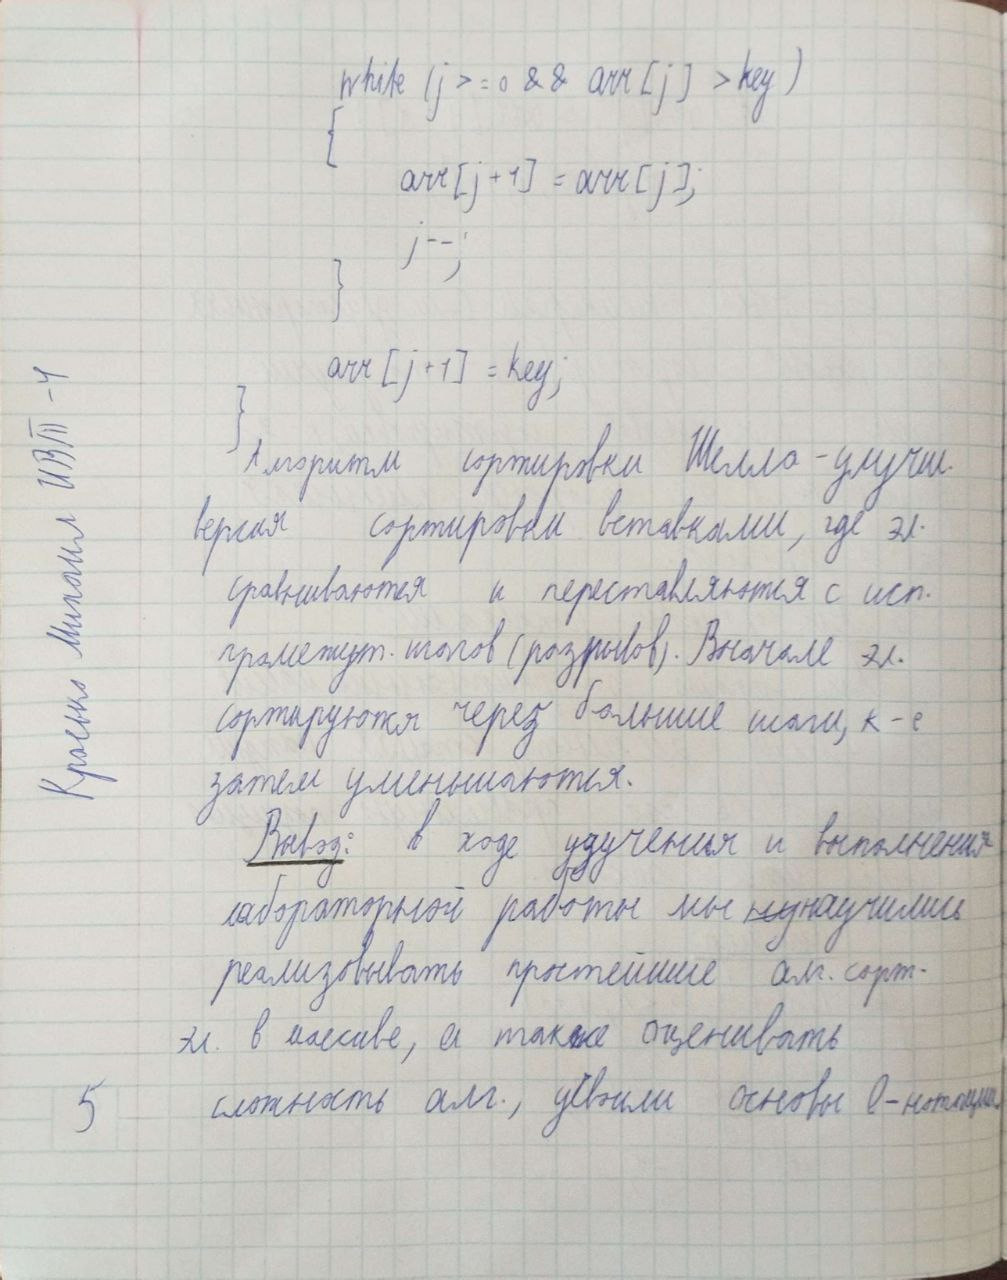 while (j >= 0 && arr[j] > key)
{
arr[j+1] = arr[j];
j--;
}
arr[j+1] = key;
}
Алгоритм сортировки Шелла - улучш.
версия сортировки вставками, где эл.
сравниваются и переставляются с исп.
промежут. шагов (разрывов). Вначале эл.
сортируются через большие шаги, к-е
затем уменьшаются.
Вывод: в ходе изучения и выполнения
лабораторной работы мы научились
реализовывать простейшие алг. сорт.
эл. в массиве, а также оценивать
сложность алг., усвоили основы O-нотации
5
Михаил ИВТ-1